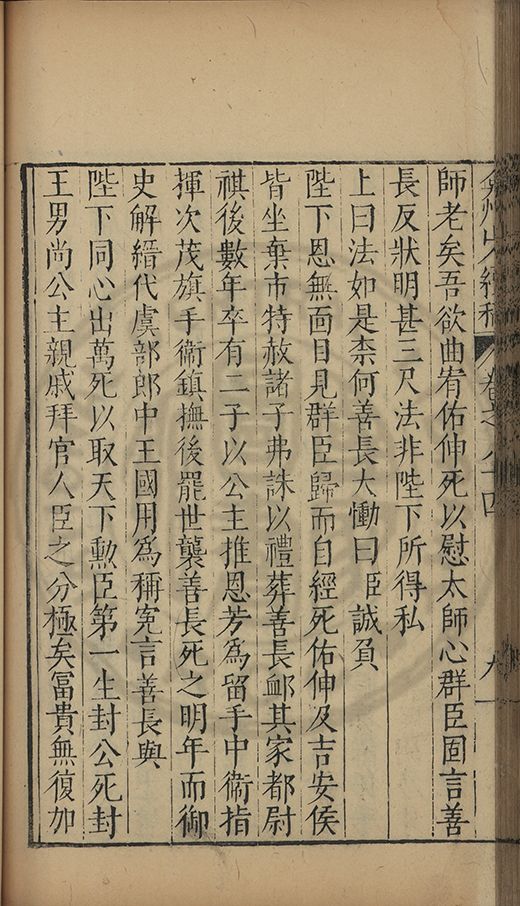 弇州史料續稿 卷之八十四 九
師老矣吾欲曲宥佑伸死以慰太師心群臣固言善
長反狀明甚三尺法非陛下所得私
上曰法如是柰何善長大慟曰臣誠負
陛下恩無面目見群臣歸而自經死佑伸及吉安侯
皆坐棄市特赦諸子弗誅以禮葬善長衈其家都尉
祺後數年卒有二子以公主推恩芳為留手中衞指
揮次茂旗手衞鎮撫後罷世襲善長死之明年而御
史解縉代虞部郎中王國用為稱冤言善長與
陛下同心出萬死以取天下勳臣第一生封公死封
王男尚公主親戚拜官人臣之分極矣冨貴無復加